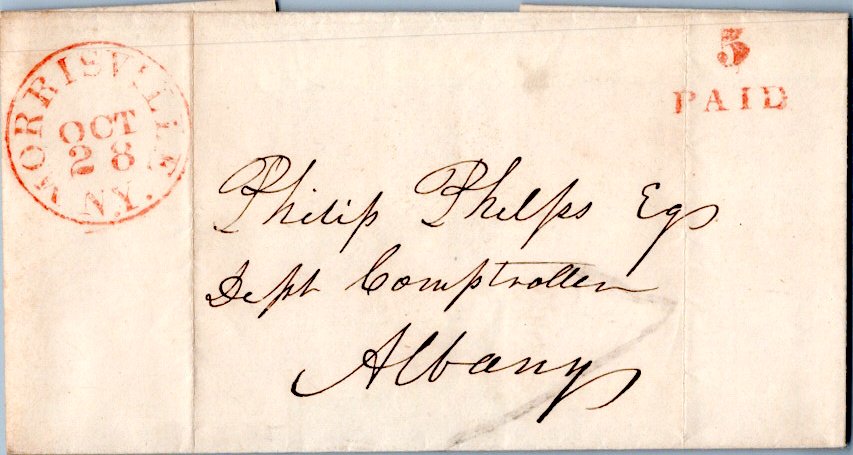 MORRISVILLE N.Y.
OCT
28
5
PAID
Philip Phelps Esq
Dept Comptroller
Albany